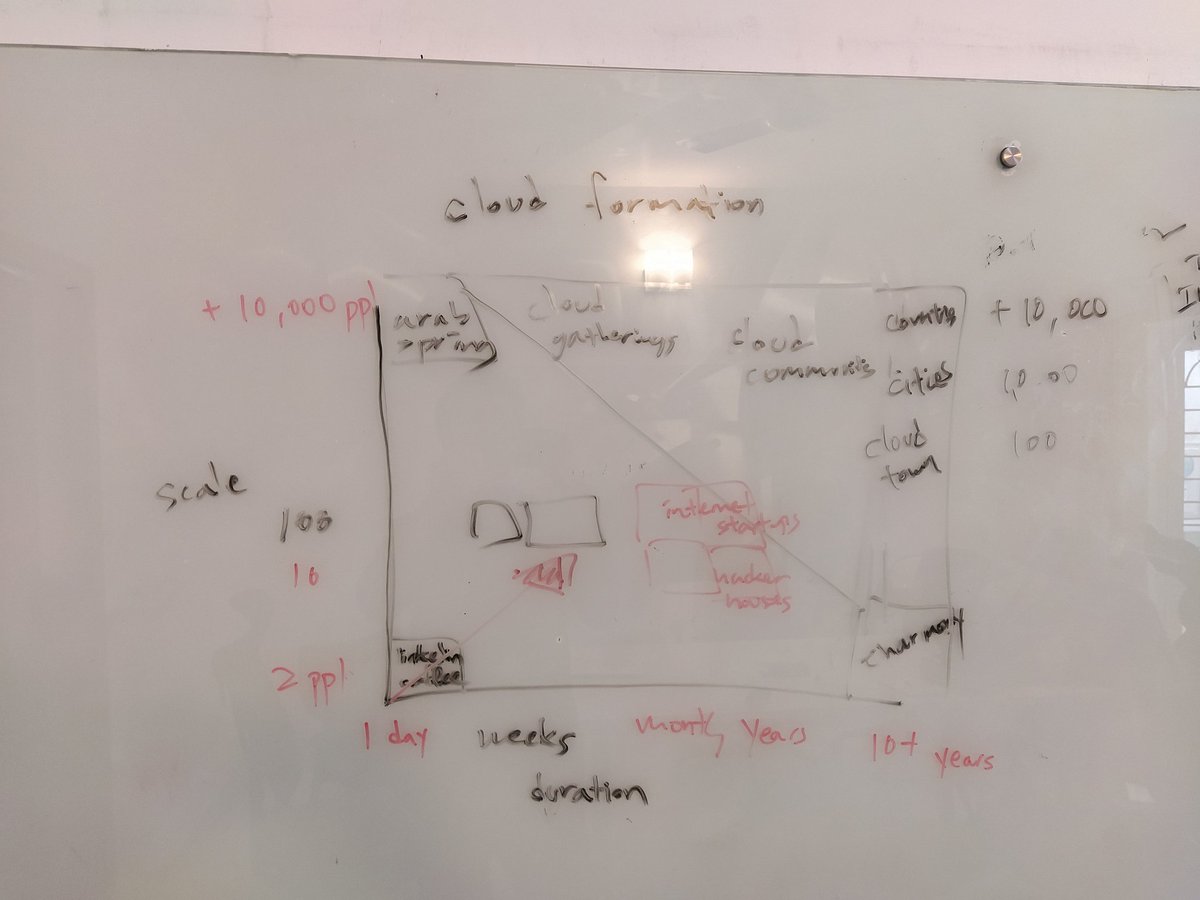 cloud formation
+ 10,000 ppl
arab
spring
cloud
gatherings
cloud
countries
+ 10,000
cities
cloud
town
100
scale
100
internet
startups
10
hacker
houses
2 ppl
1 day
weeks
month
years
10+ years
duration